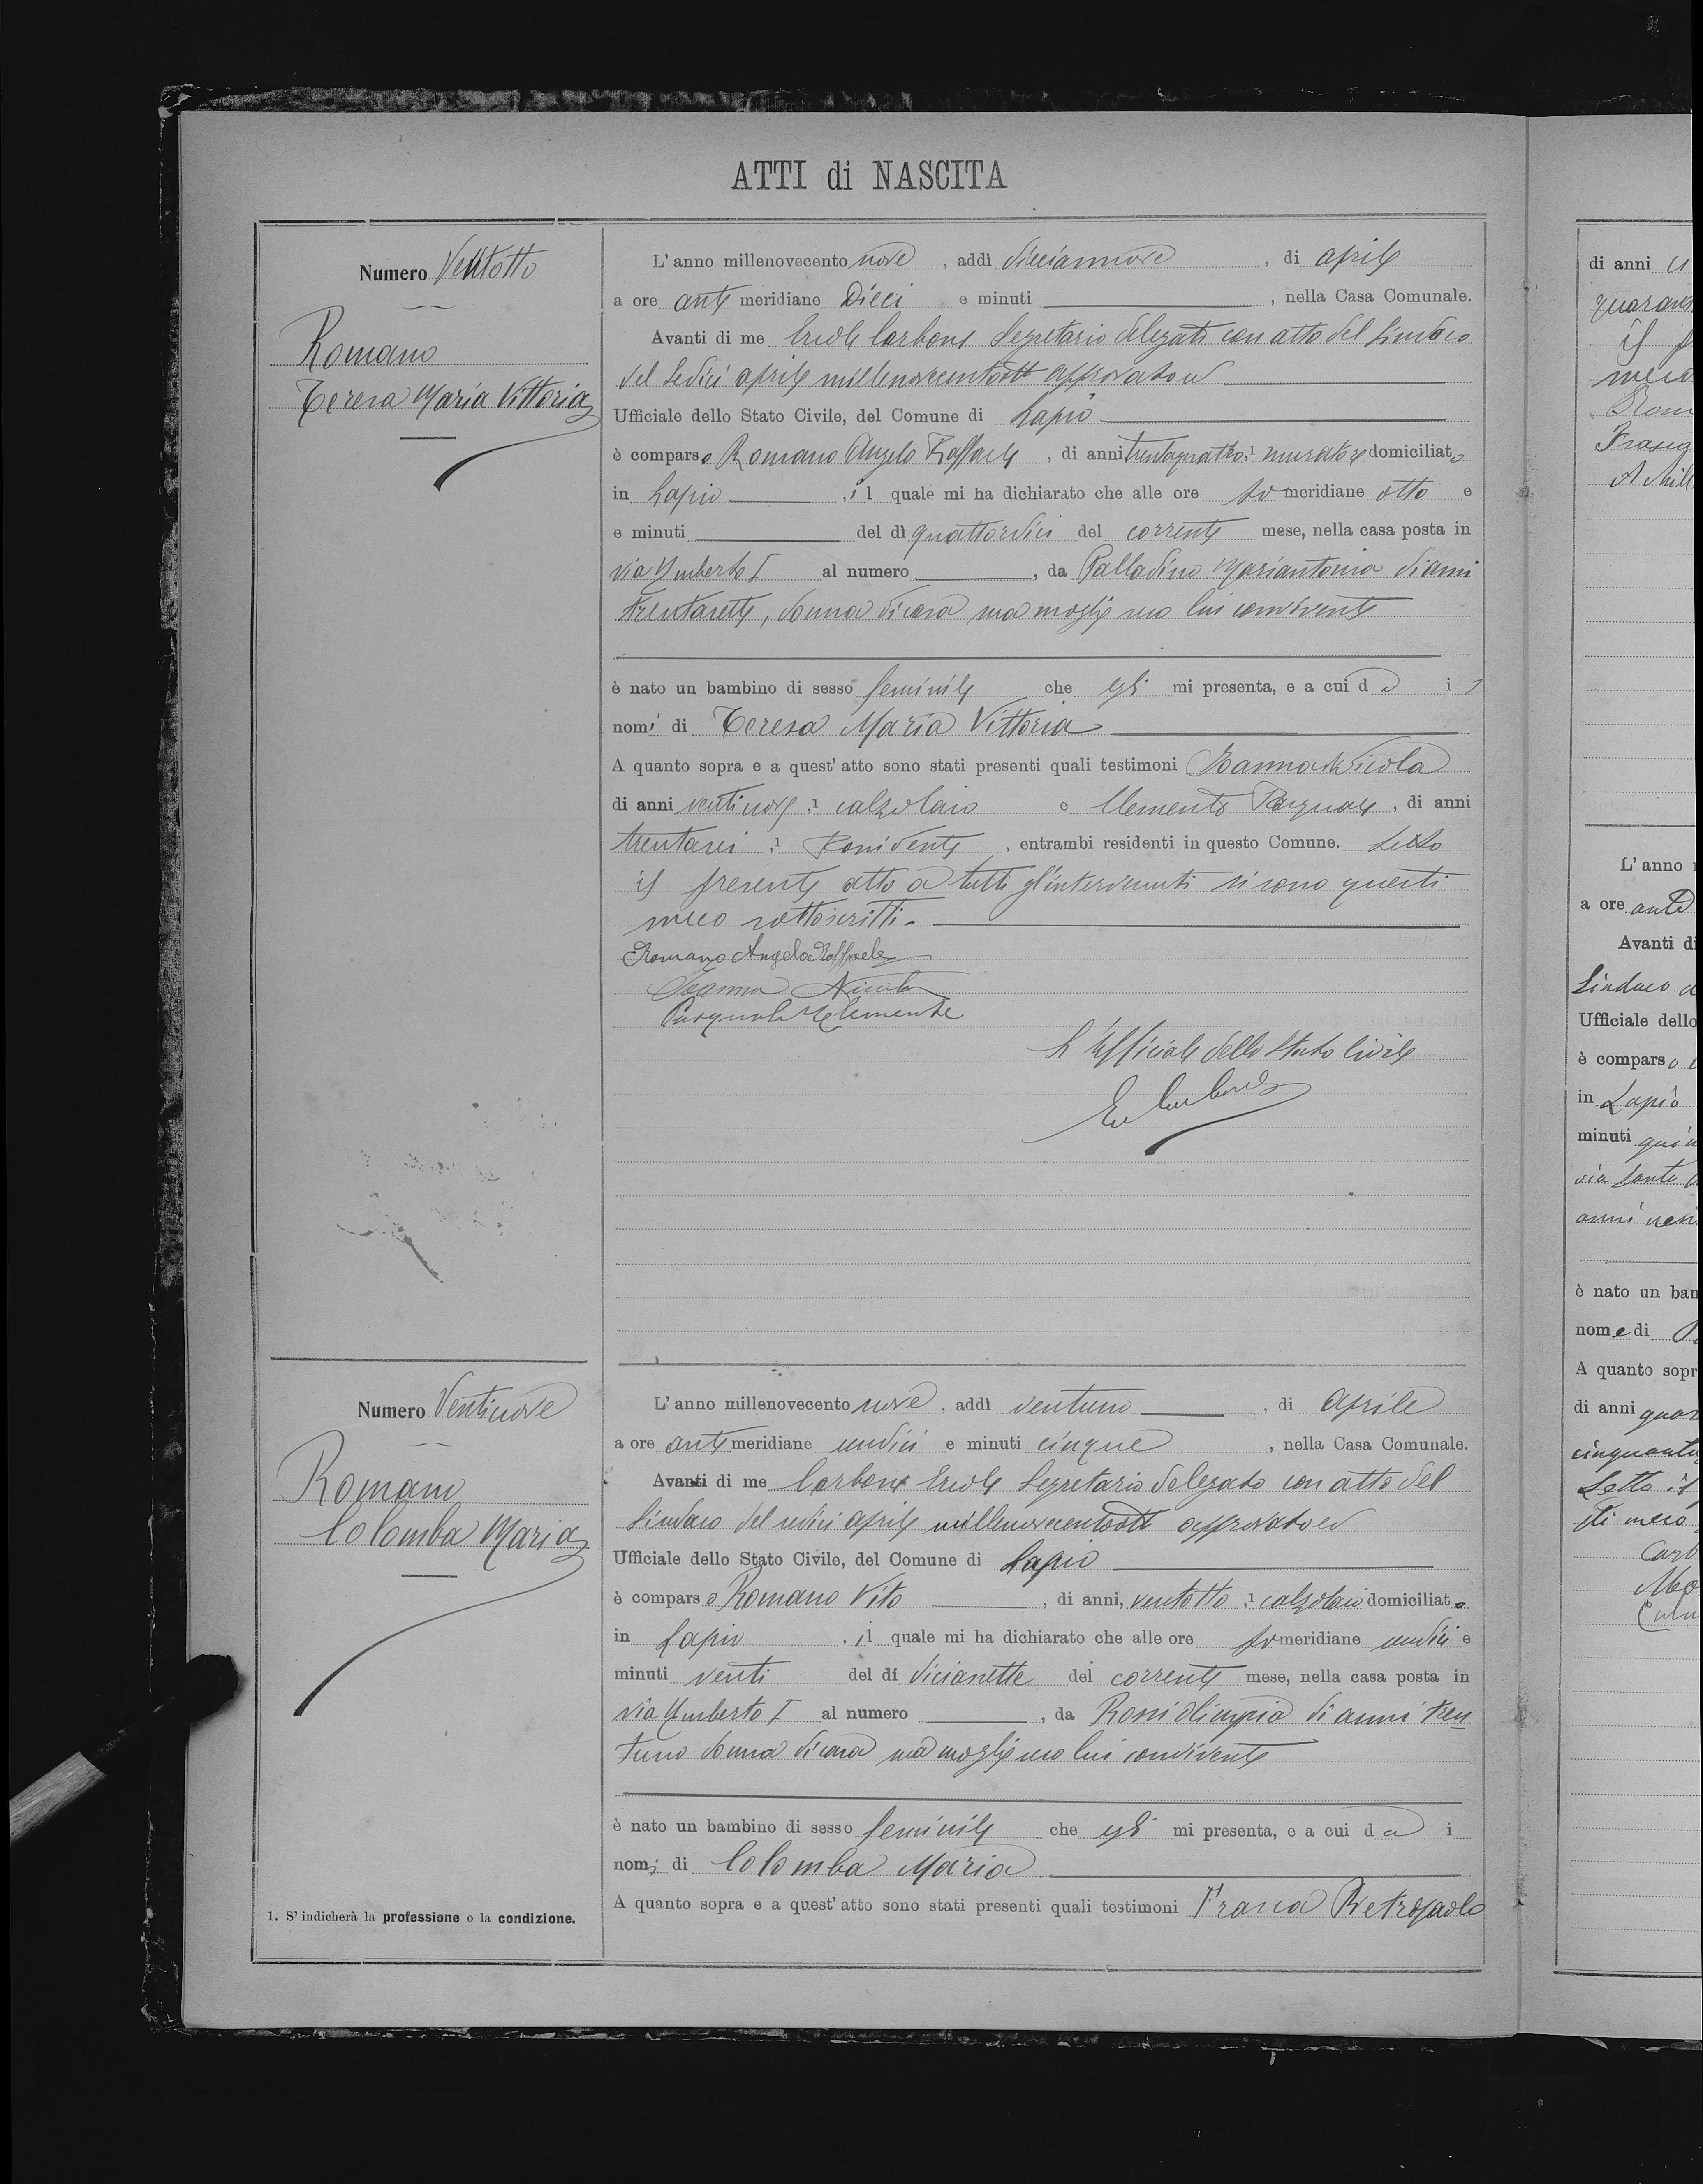 ATTI di NASCITA
Numero Ventotto
Romano
Teresa Maria Vittoria
L'anno millenovecento nove, addì diciannove, di aprile
a ore ante meridiane Dieci e minuti, nella Casa Comunale.
Avanti di me Ercole Carbone Segretario delegato con atto del Sindaco
del Sedici aprile millenovecentootto approvato ed
Ufficiale dello Stato Civile, del Comune di Lapio
è comparso Romano Angelo Raffaele, di anni trentaquattro, muratore domiciliato
in Lapio, il quale mi ha dichiarato che alle ore po meridiane otto e
e minuti del dì quattordici del corrente mese, nella casa posta in
via Umberto I al numero, da Palladino Mariantonia di anni
trentasette, donna di casa sua moglie seco lui convivente
è nato un bambino di sesso feminile che egli mi presenta, e a cui dà i
nomi di Teresa Maria Vittoria
A quanto sopra e a quest'atto sono stati presenti quali testimoni Ioanna Nicola
di anni ventinove, calzolaio e Clemente Pasquale, di anni
trentasei, Possidente, entrambi residenti in questo Comune. Letto
il presente atto a tutti gl'intervenuti si sono questi
meco sottoscritti.
Romano Angelo Raffaele
Ioanna Nicola
Pasquale Clemente
L'Ufficiale dello Stato Civile
E. Carbone
Numero Ventinove
Romano
Colomba Maria
L'anno millenovecento nove, addì ventuno, di Aprile
a ore ante meridiane undici e minuti cinque, nella Casa Comunale.
Avanti di me Carbone Ercole Segretario delegato con atto del
Sindaco del sedici aprile millenovecentootto approvato ed
Ufficiale dello Stato Civile, del Comune di Lapio
è comparso Romano Vito, di anni, ventotto, calzolaio domiciliato
in Lapio, il quale mi ha dichiarato che alle ore po meridiane undici e
minuti venti del dì diciasette del corrente mese, nella casa posta in
via Umberto I al numero, da Rossi Olimpia di anni tren
tuno donna di casa sua moglie seco lui convivente
è nato un bambino di sesso feminile che egli mi presenta, e a cui dà i
nomi di Colomba Maria
A quanto sopra e a quest'atto sono stati presenti quali testimoni Pietropaolo
1. S'indicherà la professione o la condizione.
di anni
il
meco
L'anno
a ore ante
Avanti di
Sindaco
Ufficiale dello
è comparso
in Lapio
minuti
via
anni
è nato un bam
nome di
A quanto sopr
di anni
Letto il
sti meco